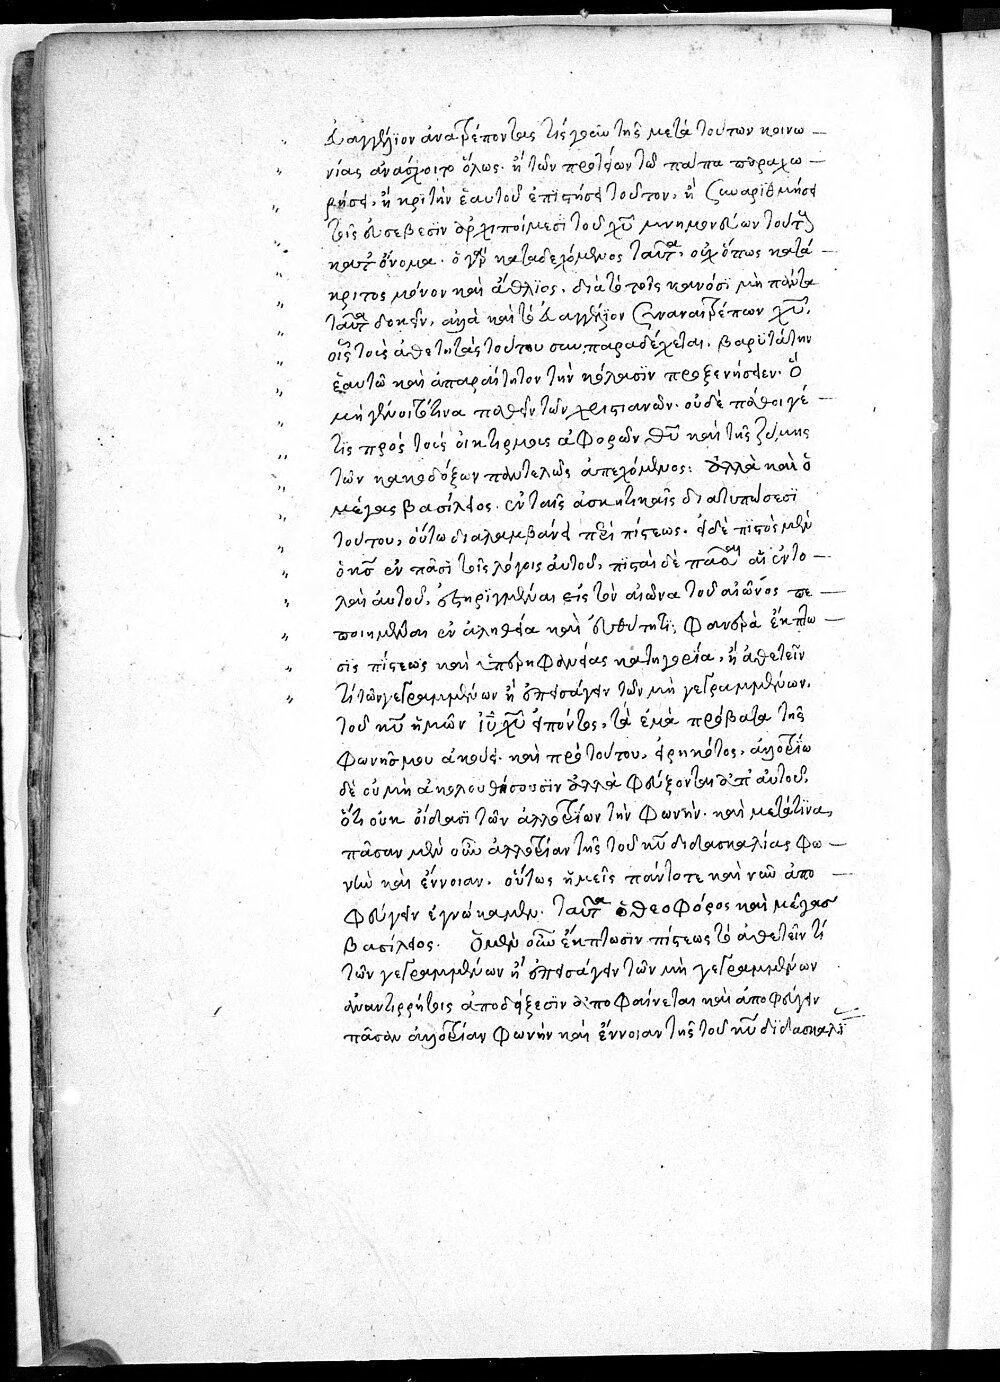 εὐαγγέλιον ἀνατρέποντας τίς γοῦν τῆς μετὰ τούτων κοινω
νίας ἀνάσχοιτο ὅλως· ἢ τῶν πρωτείων τῶ πάπα παραχω
ρήσει, ἢ κριτὴν ἑαυτοῦ ἐπιστήσει τοῦτον, ἢ συναριθμήσει
τοῖς εὐσεβέσιν ἀρχιποίμεσι τοῦ χυ μνημονεύων τούτου
κατ' ὄνομα· ὁ γὰρ καταδεχόμενος ταῦτα, οὐχ ὅπως κατά
κριτος μόνον καὶ ἄθλιος, διὰ τὸ τοῖς κανόσι μὴ πάντα
ταῦτα δοκεῖν, ἀλλὰ καὶ τὸ εὐαγγέλιον συναναιτρέπων χυ,
οἷς τοὺς ἀθετητὰς τούτου συμπαραδέχεται, βαρυτάτην
ἑαυτῶ καὶ ἀπαραίτητον τὴν κόλασιν προξενήσειεν· ὃ
μὴ γένοιτό τινα παθεῖν τῶν χριστιανῶν· οὐδὲ πάθοι γέ
τις πρὸς τοὺς οἰκτιρμοὺς ἀφορῶν θυ καὶ τῆς ζύμης
τῶν κακοδόξων παντελῶς ἀπεχόμενος: ἀλλὰ καὶ ὁ
μέγας βασίλειος· ἐν ταῖς ἀσκητικαῖς διατυπώσεσι
τούτου, οὕτω διαλαμβάνει περὶ πίστεως· εἰ δὲ πιστὸς μὲν
ὁ κς ἐν πᾶσι τοῖς λόγοις αὐτοῦ, πισταὶ δὲ πᾶσαι αἱ ἐντο
λαὶ αὐτοῦ, ἐστηριγμέναι εἰς τὸν αἰῶνα τοῦ αἰῶνος πε
ποιημέναι ἐν ἀληθεία καὶ εὐθύτητι, φανερὰ ἔκπτω
σις πίστεως καὶ ὑπερηφανίας κατηγορία, ἢ ἀθετεῖν
τὶ τῶν γεγραμμένων ἢ ἐπεισάγειν τῶν μὴ γεγραμμένων,
τοῦ κυ ἡμῶν ιυ χυ εἰπόντος, τὰ ἐμὰ πρόβατα τῆς
φωνῆς μου ἀκούει· καὶ πρὸ τούτου, εἰρηκότος, ἀλλοτρίω
δὲ οὐ μὴ ἀκολουθήσουσιν ἀλλὰ φεύξονται ἀπ' αὐτοῦ,
ὅτι οὐκ οἴδασι τῶν ἀλλοτρίων τὴν φωνήν· καὶ μετά τινα,
πᾶσαν μὲν οὖν ἀλλοτρίαν τῆς τοῦ κυ διδασκαλίας φω
νὴν καὶ ἔννοιαν, οὕτως ἡμεῖς πάντοτε καὶ νῦν ἀπο
φεύγειν ἐγνώκαμεν· ταῦτα ὁ θεοφόρος καὶ μέγας
βασίλειος· ὁ μὲν οὖν ἔκπτωσιν πίστεως τὸ ἀθετεῖν τί
τῶν γεγραμμένων ἢ ἐπεισάγειν τῶν μὴ γεγραμμένων
ἀναντιρρήτοις ἀποδείξεσιν ἀποφαίνεται καὶ ἀποφεύγειν
πᾶσαν ἀλλοτρίαν φωνὴν καὶ ἔννοιαν τῆς τοῦ κυ διδασκαλί